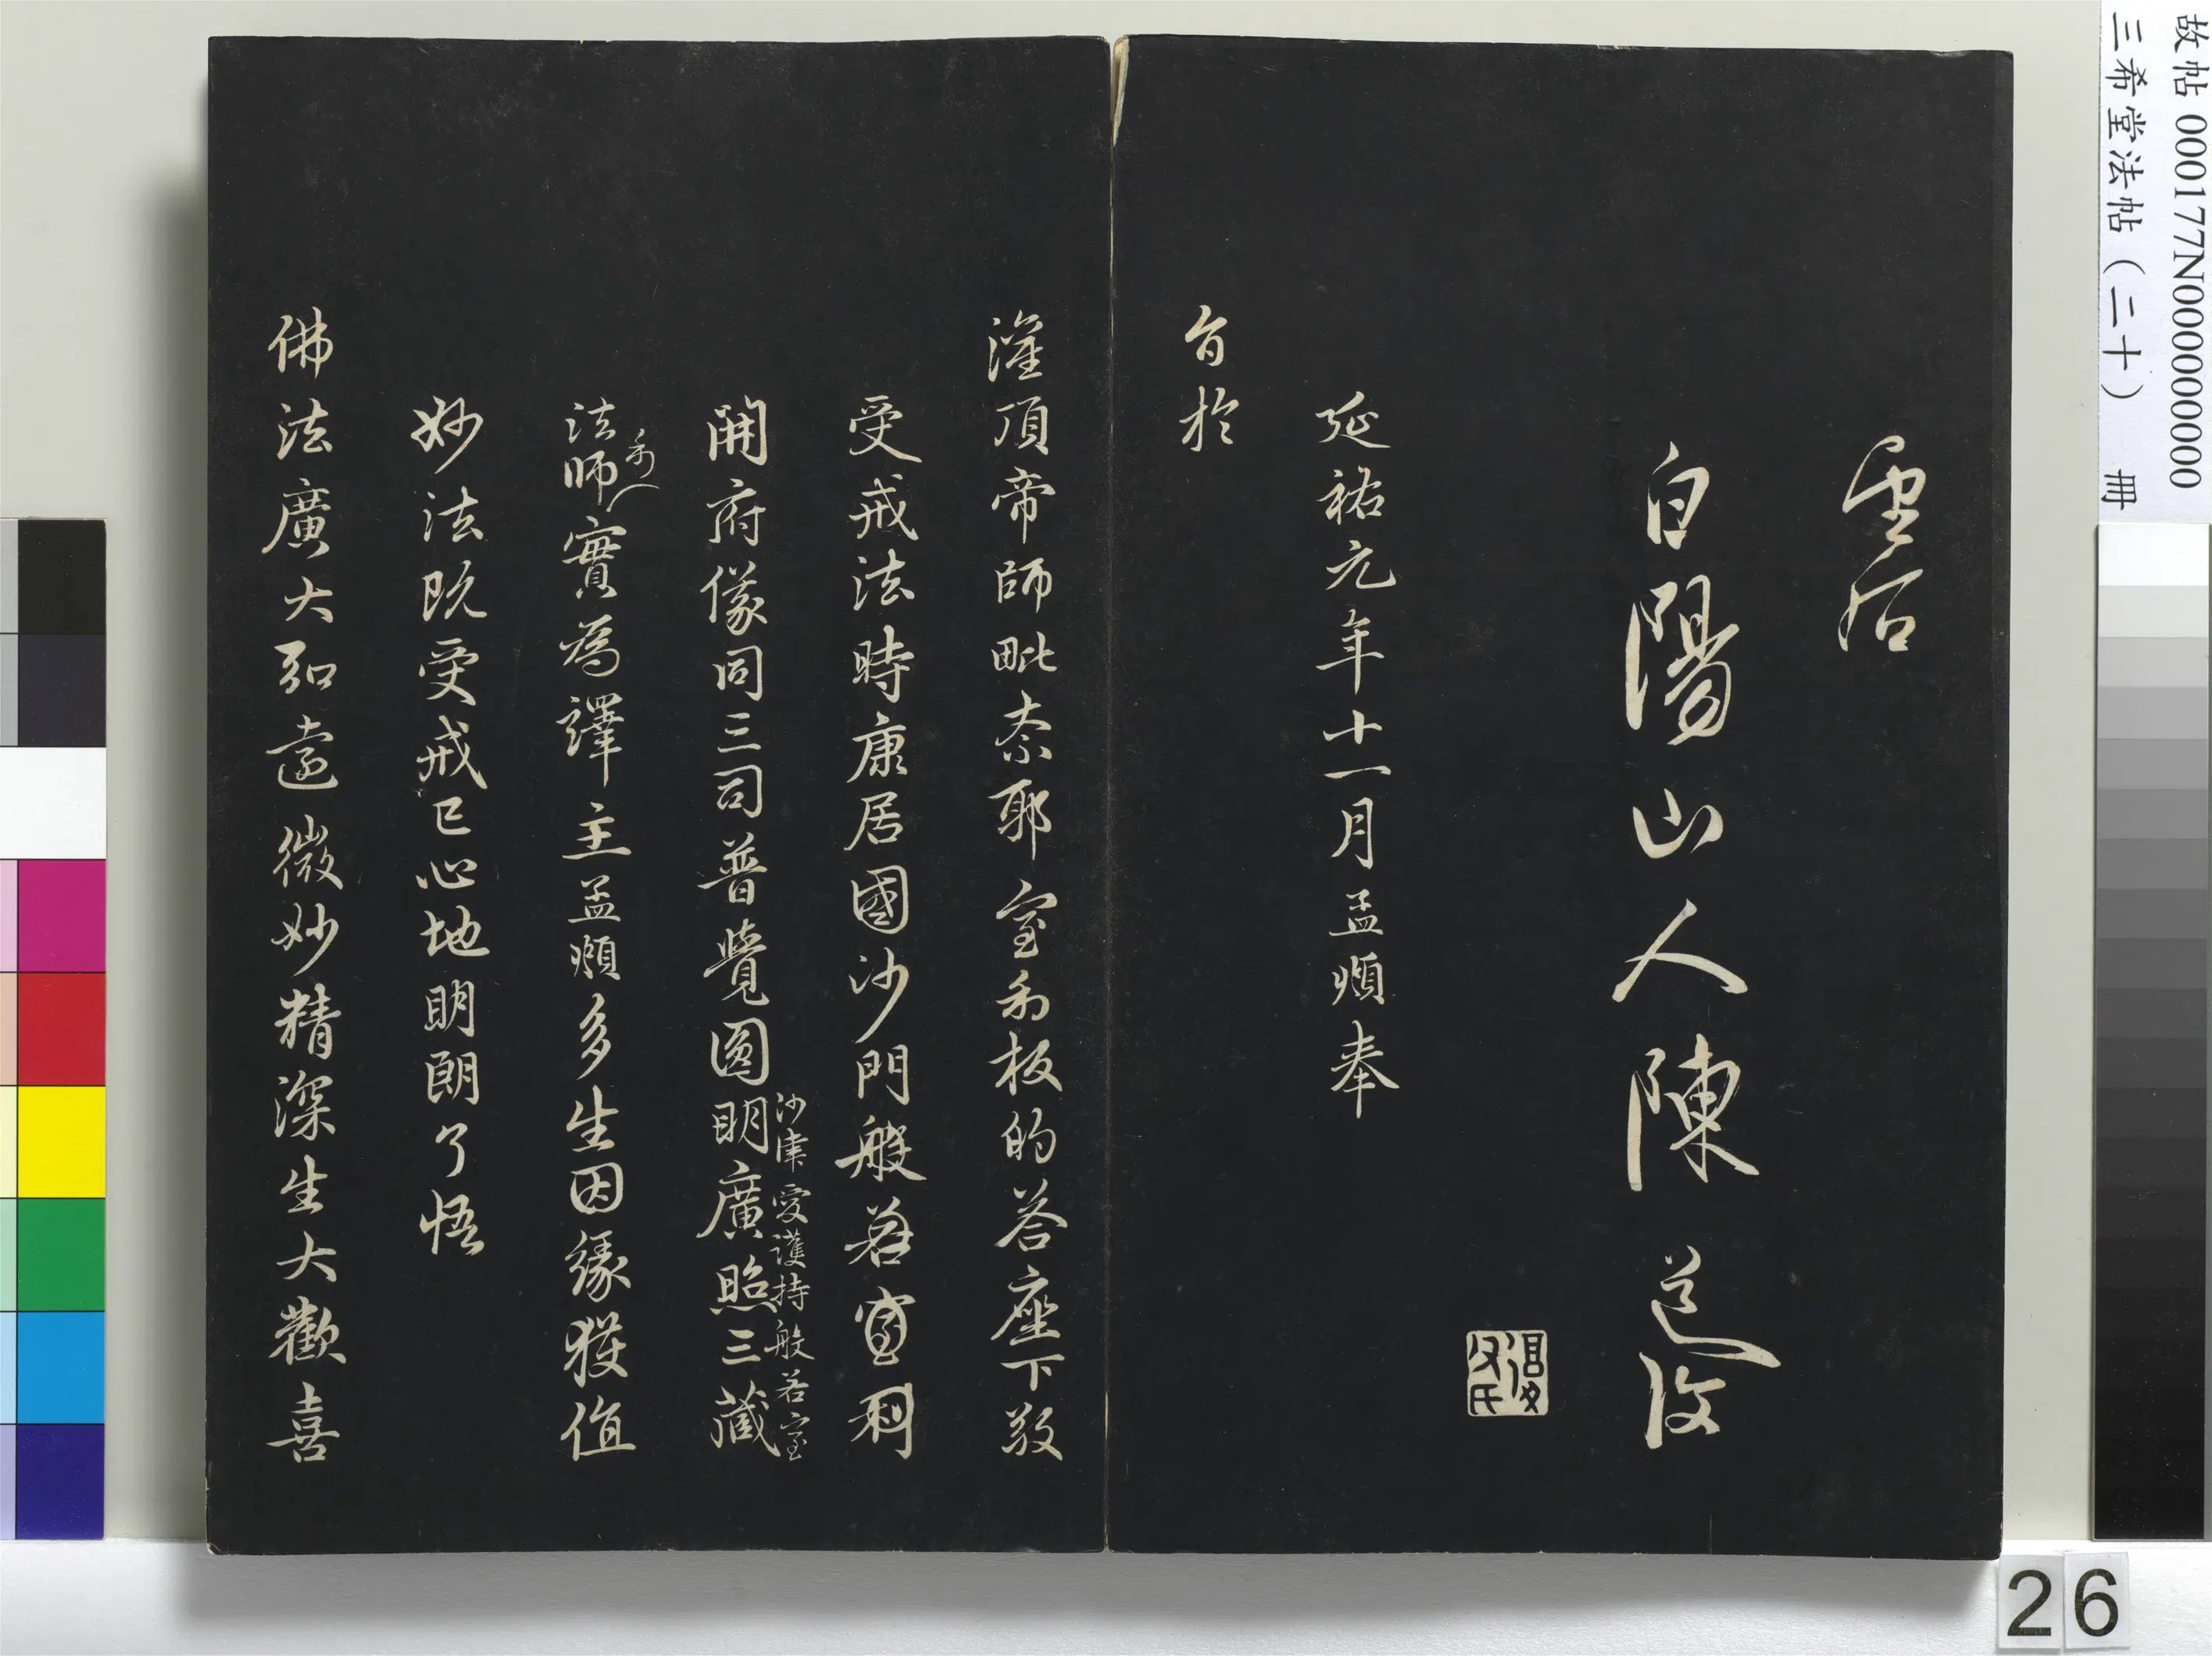 故帖 000177N000000000
三希堂法帖（二十） 冊
白陽山人陳道復
延祐元年十一月孟頫奉
旨於
灌頂帝師毗奈耶室利板的荅座下敬
受戒法時康居國沙門般若室利
開府儀同三司普覺圓明廣照三藏
沙律愛護持般若室
利
法師實為譯主孟頫多生因緣獲值
妙法既受戒已心地明朗了悟
佛法廣大弘遠微妙精深生大歡喜
26